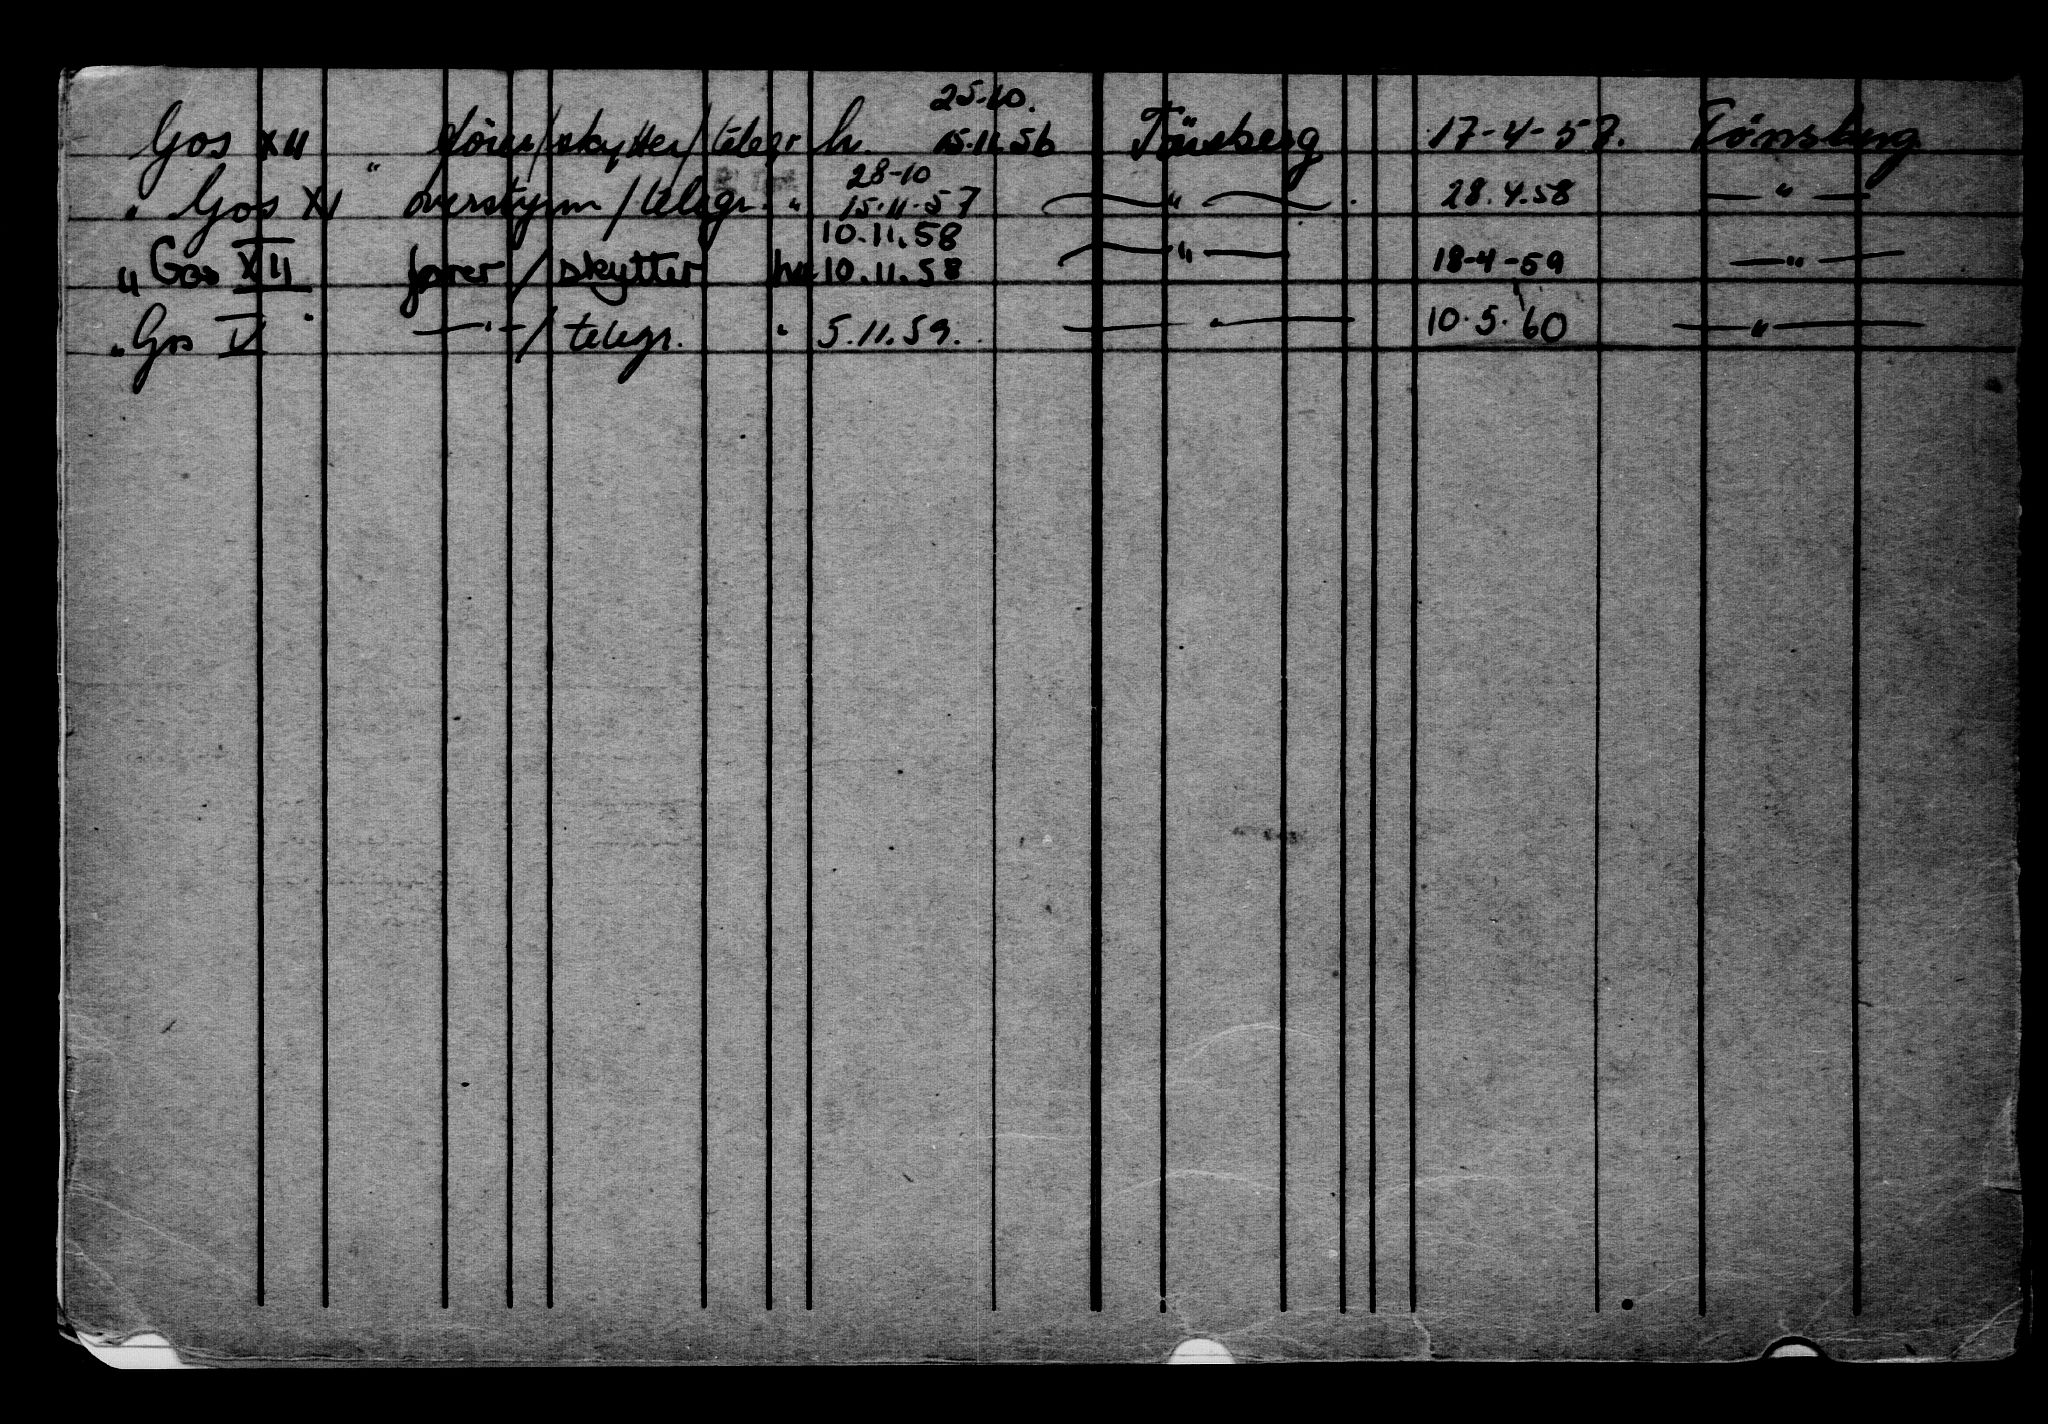 25-10.
Gos XII " fører/skytter/telegr hv. 15.11.56 Tönsberg 17-4-57. Tønsberg
28-10
" Gos XI overstyrm/telegr. " 15.11.57 — " — . 28.4.58 — " —
10.11.58
" Gos XII fører / skytter hv. 10.11.58 — " — 18-4-59 — " —
" Gos V " — " — / telegr. " 5.11.59. — " — 10.5.60 — " —